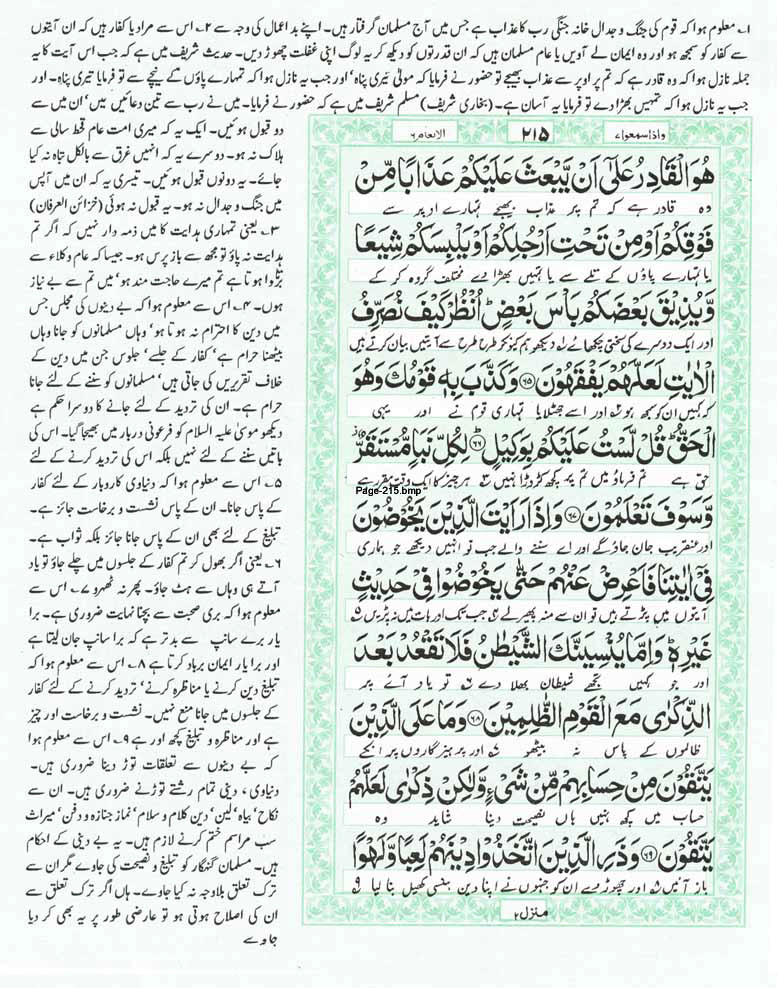 ۱۔ معلوم ہوا کہ قوم کی جنگ و جدال خانہ جنگی رب کا عذاب ہے جس میں آج مسلمان گرفتار ہیں۔ اپنے بد اعمال کی وجہ سے ۲۔ اس سے مراد یا کفار ہیں کہ ان آیتوں
سے کفار کو سمجھ ہو اور وہ ایمان لے آویں یا عام مسلمان ہیں کہ ان قدرتوں کو دیکھ کر یہ لوگ اپنی غفلت چھوڑ دیں۔ حدیث شریف میں ہے کہ جب اس آیت کا یہ
جملہ نازل ہوا کہ وہ قادر ہے کہ تم پر اوپر سے عذاب بھیجے تو حضور نے فرمایا کہ مولیٰ تیری پناہ، اور جب یہ نازل ہوا کہ تمہارے پاؤں کے نیچے سے تو فرمایا تیری پناہ۔ اور
جب یہ نازل ہوا کہ تمہیں بھڑا دے تو فرمایا یہ آسان ہے۔ (بخاری شریف) مسلم شریف میں ہے کہ حضور نے فرمایا۔ میں نے رب سے تین دعائیں ہیں، ان میں سے
دو قبول ہوئیں۔ ایک یہ کہ میری امت عام قحط سالی سے
ہلاک نہ ہو۔ دوسرے یہ کہ انہیں غرق سے بالکل تباہ نہ کیا
جائے۔ یہ دونوں قبول ہوئیں۔ تیسری یہ کہ ان میں آپس
میں جنگ و جدال نہ ہو۔ یہ قبول نہ ہوئی (خزائن العرفان)
۳۔ یعنی تمہاری ہدایت کا میں ذمہ دار نہیں کہ اگر تم
ہدایت نہ پاؤ تو مجھ سے باز پرس ہو۔ جیسا کہ عام وکلاء سے
ہوا ہے تم میرے حاجت مند ہو، میں تم سے بے نیاز
ہوں۔ ۴۔ اس سے معلوم ہوا کہ بے دینوں کی مجلس جس
میں دین کا احترام نہ ہوتا ہو، وہاں مسلمانوں کو جانا وہاں
بیٹھنا حرام ہے، کفار کے جلسے، جلوس جن میں دین کے
خلاف تقریریں کی جاتی ہیں، مسلمانوں کو سننے کے لئے جانا
حرام ہے۔ ان کی تردید کے لئے جانے کا دوسرا حکم ہے
دیکھو موسیٰ علیہ السلام کو فرعونی دربار میں بھیجا گیا۔ اس کی
باتیں سننے کے لئے نہیں بلکہ اس کی تردید کرنے کے لئے
۵۔ اس سے معلوم ہوا کہ دنیاوی کاروبار کے لئے کفار
کے پاس جانا۔ ان کے پاس نشست و برخاست جائز ہے۔
تبلیغ کے لئے بھی ان کے پاس جانا جائز بلکہ ثواب ہے۔
۶۔ یعنی اگر بھول کر تم کفار کے جلسوں میں چلے جاؤ تو یاد
آتے ہی وہاں سے ہٹ جاؤ۔ پھر نہ ٹھہرو ۷۔ اس سے
معلوم ہوا کہ بری صحبت سے بچنا نہایت ضروری ہے۔ برا
یار برے سانپ سے بدتر ہے کہ برا سانپ جان لیتا ہے
اور برا یار ایمان برباد کرتا ہے ۸۔ اس سے معلوم ہوا کہ
تبلیغ دین کرنے یا مناظرہ کرنے، تردید کرنے کے لئے کفار
کے جلسوں میں جانا منع نہیں۔ نشست و برخاست اور چیز
ہے اور مناظرہ و تبلیغ کچھ اور ہے ۹۔ اس سے معلوم ہوا
کہ بے دینوں سے تعلقات توڑ دینا ضروری ہیں۔
دنیاوی، دینی تمام رشتے توڑنے ضروری ہیں۔ ان سے
نکاح، بیاہ، لین، دین کلام و سلام، نماز جنازہ و دفن، میراث
سب مراسم ختم کرنے لازم ہیں۔ یہ بے دینی کے احکام
ہیں۔ مسلمان گنہگار کو تبلیغ و نصیحت کی جاوے مگر ان سے
ترک تعلق بلاوجہ نہ کیا جاوے۔ ہاں اگر ترک تعلق سے
ان کی اصلاح ہوتی ہو تو عارضی طور پر یہ بھی کر دیا
جاوے
واذا سمعوا ۷ ۲۱۵ الانعام ۶
هُوَ الْقَادِرُ عَلٰۤى اَنْ يَّبْعَثَ عَلَيْكُمْ عَذَابًا مِّنْ
وہ قادر ہے کہ تم پر عذاب بھیجے تمہارے اوپر سے
فَوْقِكُمْ اَوْ مِنْ تَحْتِ اَرْجُلِكُمْ اَوْ يَلْبِسَكُمْ شِيَعًا
یا تمہارے پاؤں کے تلے سے یا تمہیں بھڑا دے مختلف گروہ کر کے
وَّيُذِيْقَ بَعْضَكُمْ بَاْسَ بَعْضٍ ؕ اُنْظُرْ كَيْفَ نُصَرِّفُ
اور ایک دوسرے کی سختی چکھائے ۱ دیکھو ہم کیونکر طرح طرح سے آیتیں بیان کرتے ہیں
الْاٰيٰتِ لَعَلَّهُمْ يَفْقَهُوْنَ ﴿۶۵﴾ وَكَذَّبَ بِهٖ قَوْمُكَ وَهُوَ
کہ کہیں ان کو سمجھ ہو ۲ اور اسے جھٹلایا تمہاری قوم نے اور یہی
الْحَقُّ ؕ قُلْ لَّسْتُ عَلَيْكُمْ بِوَكِيْلٍ ﴿۶۶﴾ لِكُلِّ نَبَاٍ مُّسْتَقَرٌّ
حق ہے تم فرماؤ میں تم پر کچھ کڑوڑا نہیں ۳ ہر چیز کا ایک وقت مقرر ہے
Page-215.bmp
وَّسَوْفَ تَعْلَمُوْنَ ﴿۶۷﴾ وَاِذَا رَاَيْتَ الَّذِيْنَ يَخُوْضُوْنَ
اور عنقریب جان جاؤ گے اور اے سننے والے جب تو انہیں دیکھے جو ہماری
فِيْۤ اٰيٰتِنَا فَاَعْرِضْ عَنْهُمْ حَتّٰى يَخُوْضُوْا فِيْ حَدِيْثٍ
آیتوں میں پڑتے ہیں تو ان سے منہ پھیر لے ۴ جب تک اور بات میں نہ پڑیں ۵
غَيْرِهٖ ؕ وَاِمَّا يُنْسِيَنَّكَ الشَّيْطٰنُ فَلَا تَقْعُدْ بَعْدَ
اور جو کہیں تجھے شیطان بھلا دے ۶ تو یاد آئے پر
الذِّكْرٰى مَعَ الْقَوْمِ الظّٰلِمِيْنَ ﴿۶۸﴾ وَمَا عَلَى الَّذِيْنَ
ظالموں کے پاس نہ بیٹھو ۷ اور پرہیزگاروں پر انکے
يَتَّقُوْنَ مِنْ حِسَابِهِمْ مِّنْ شَيْءٍ وَّلٰكِنْ ذِكْرٰى لَعَلَّهُمْ
حساب میں کچھ نہیں ہاں نصیحت دینا شاید وہ
يَتَّقُوْنَ ﴿۶۹﴾ وَذَرِ الَّذِيْنَ اتَّخَذُوْا دِيْنَهُمْ لَعِبًا وَّلَهْوًا
باز آئیں ۸ اور چھوڑ دے ان کو جنہوں نے اپنا دین ہنسی کھیل بنا لیا ۹
منزل ۲